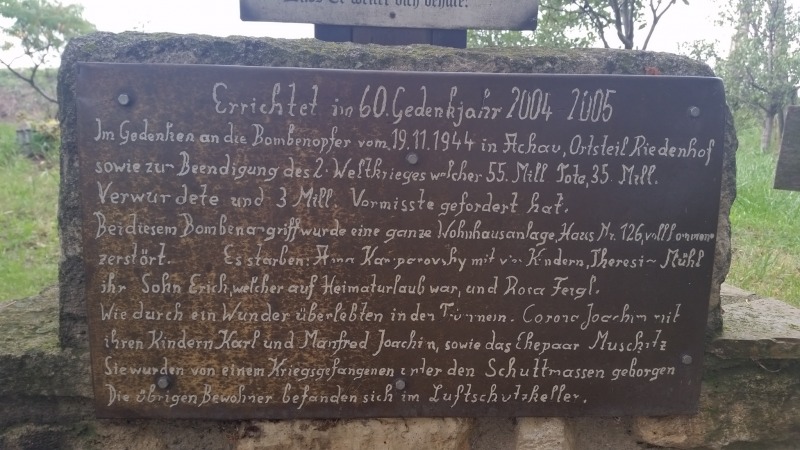 Errichtet im 60. Gedenkjahr 2004 2005
Im Gedenken an die Bombenopfer vom 19.11.1944 in Achau, Ortsteil Riedenhof
sowie zur Beendigung des 2. Weltkrieges welcher 55. Mill Tote, 35. Mill.
Verwundete und 3 Mill. Vormisste gefordert hat.
Bei diesem Bombenangriff wurde eine ganze Wohnhausanlage, Haus Nr. 126, vollkommen
zerstört. Es starben: Anna mit Kindern, Theresia Mühl
ihr Sohn Erich, welcher auf Heimaturlaub war, und Rosa Feigl.
Wie durch ein Wunder überlebten in den Corona Joachim mit
ihren Kindern Karl und Manfred Joachim, sowie das Ehepaar Muschitz
Sie wurden von einem Kriegsgefangenen unter den Schuttmassen geborgen
Die übrigen Bewohner befanden sich im Luftschutzkeller.